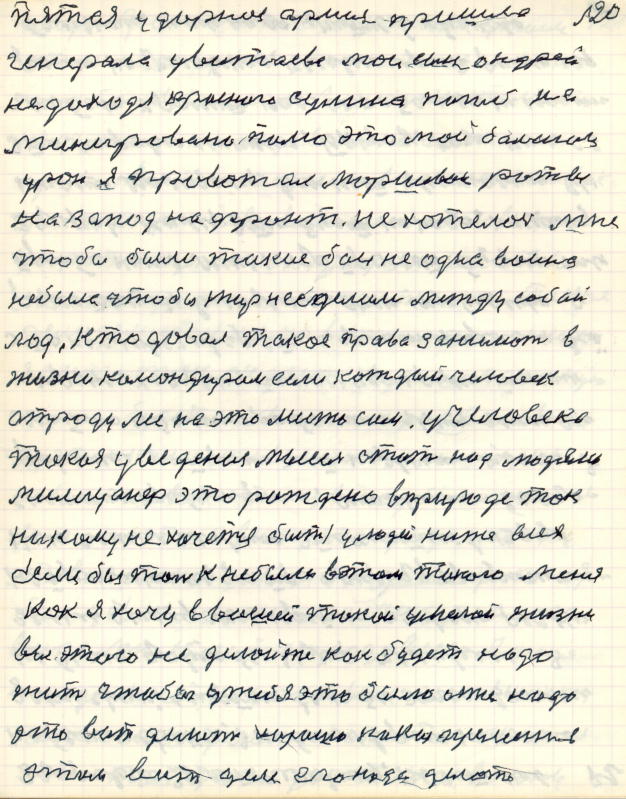 пятая ударная армия пришла 120
генерала цвитаева мой сын андрей
недоходя красного сулина погиб не
минировано поле это мой большой
урон я провожал маршевые роты
на запад на фронт. не хотелос мне
чтобы были такие бои не одна воина
небыла чтобы мир неселили между собой
лод, кто довал такое права занимат в
жизни командирам если каждый человек
от роду на это мить сам. у человека
такая уведения мысля стат над людями
милицанер это рождено в природе так
никому не хочетця быт у людей ниже всех
если бы так небыло в этом такого меня
как я хочу в вашей такой жизни
вы этого не делойте как будет надо
жит чтобы у тебя это было оже надо
это вот делат хорошо
этом вот дела его надо делать